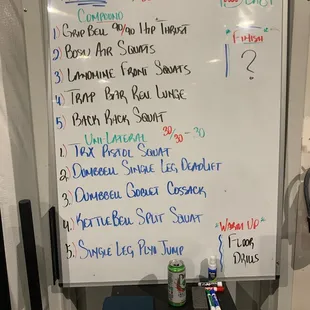 COMPOUND
1) GRIP BELL 90/90 HIP THRUST
2) BOSU AIR SQUATS
3) LANDMINE FRONT SQUATS
4) TRAP BAR REV. LUNGE
5) BACK RACK SQUAT
UNI-LATERAL 30/30 - 30
1) TRX PISTOL SQUAT
2) DUMBBELL SINGLE LEG DEADLIFT
3) DUMBBELL GOBLET COSSACK
4) KETTLEBELL SPLIT SQUAT
5) SINGLE LEG PLYO JUMP
"FINISH"
?
"WARM UP"
FLOOR
DRILLS